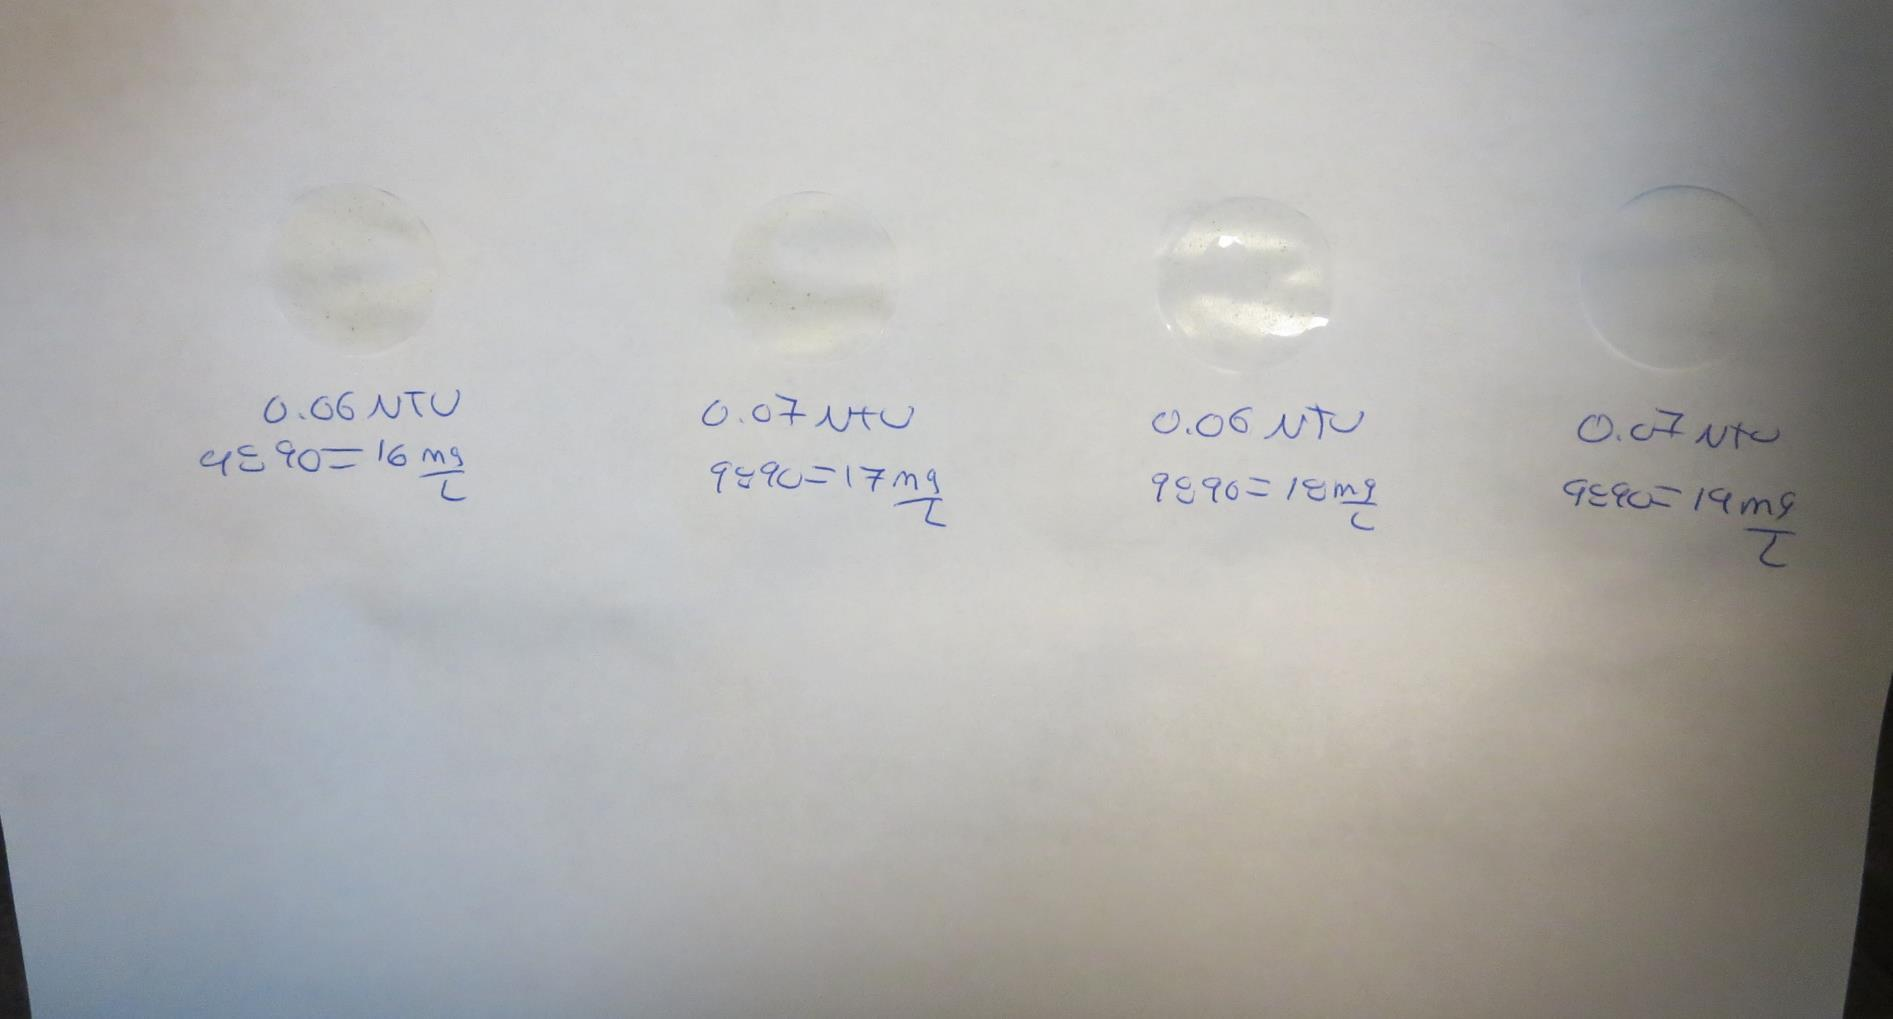 0.06 NTU
9890=16 mg/L
0.07 NTU
9890=17 mg/L
0.06 NTU
9890=18 mg/L
0.07 NTU
9890=19 mg/L